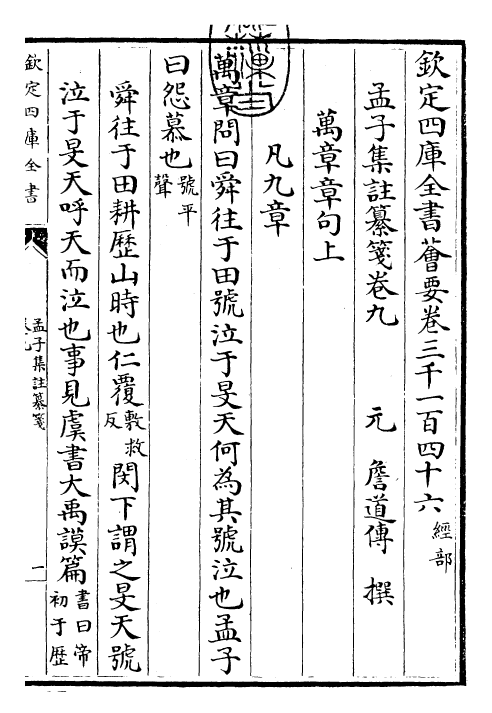 欽定四庫全書薈要卷三千一百四十六經部
孟子集註纂箋卷九 元 詹道傳 撰
萬章章句上
凡九章
萬章問曰舜往于田號泣于旻天何為其號泣也孟子
曰怨慕也號平聲
舜往于田耕歷山時也仁覆敷救反閔下謂之旻天號
泣于旻天呼天而泣也事見虞書大禹謨篇書曰帝初于歷
欽定四庫全書
孟子集註纂箋
卷九
一